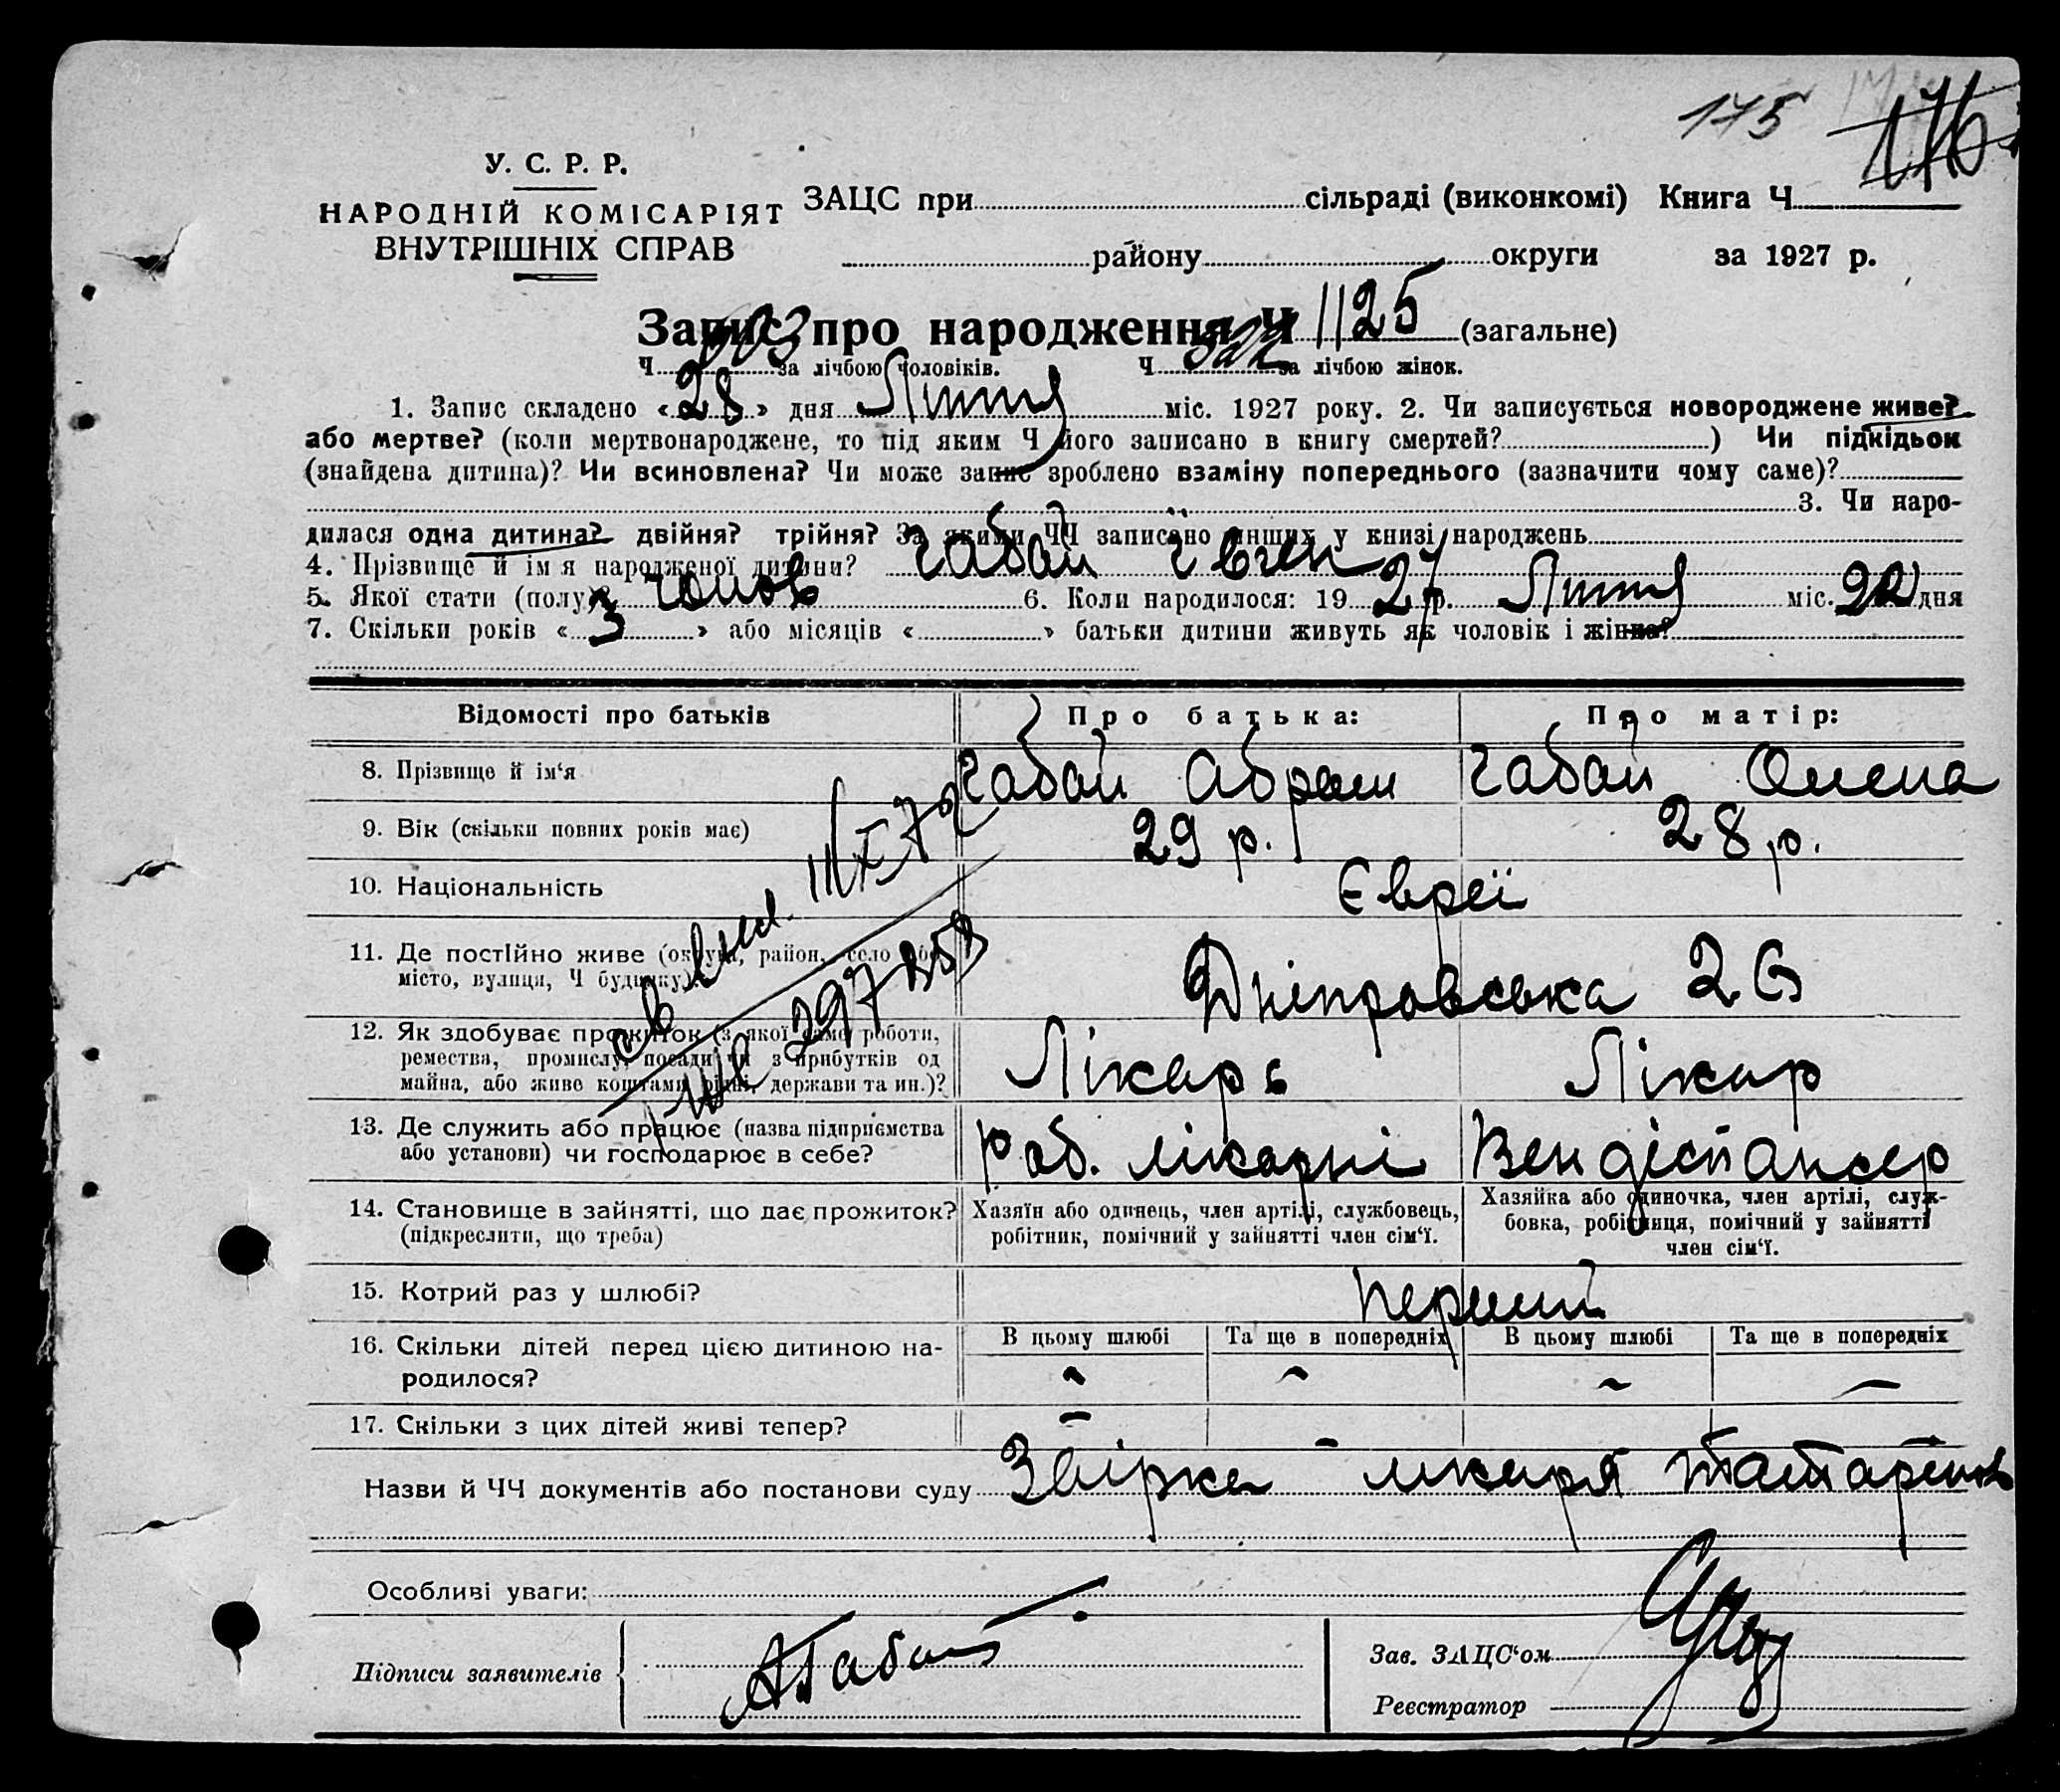 175 176
У. С. Р. Р.
НАРОДНІЙ КОМІСАРІЯТ
ВНУТРІШНІХ СПРАВ
ЗАЦС при сільраді (виконкомі) Книга Ч
району округи за 1927 р.
Запис про народження Ч 1125 (загальне)
Ч 603 за лічбою чоловіків. Ч 522 за лічбою жінок.
1. Запис складено «28» дня Липня міс. 1927 року. 2. Чи записується новороджене живе?
або мертве? (коли мертвонароджене, то під яким Ч його записано в книгу смертей? ) Чи підкідьок
(знайдена дитина)? Чи всиновлена? Чи може запис зроблено взаміну попереднього (зазначити чому саме)?
3. Чи наро-
дилася одна дитина? двійня? трійня? За якими ЧЧ записано инших у книзі народжень
4. Прізвище й ім'я народженої дитини? Габай Євген
5. Якої стати (полу)? чолов 6. Коли народилося: 1927 р. Липня міс. 22 дня
7. Скільки років «3» або місяців « » батьки дитини живуть як чоловік і жінка?
Відомості про батьків Про батька: Про матір:
8. Прізвище й ім'я Габай Абрам Габай Олена
9. Вік (скільки повних років має) 29 р. 28 р.
10. Національність Євреї
11. Де постійно живе (округа, район, село або
місто, вулиця, Ч будинку) Дніпровська 26
12. Як здобуває прожиток (з якої саме роботи,
ремества, промислу, посади чи з прибутків од
майна, або живе коштами рідні, держави та ин.)? Лікарь Лікар
13. Де служить або працює (назва підприємства
або установи) чи господарює в себе? Роб. лікарні Вендіспансер
14. Становище в зайнятті, що дає прожиток?
(підкреслити, що треба)
Хазяїн або одинець, член артілі, службовець,
робітник, помічний у зайнятті член сім'ї.
Хазяйка або одиночка, член артілі, служ-
бовка, робітниця, помічний у зайнятті
член сім'ї.
15. Котрий раз у шлюбі? перший
16. Скільки дітей перед цією дитиною на-
родилося?
В цьому шлюбі Та ще в попередніх В цьому шлюбі Та ще в попередніх
17. Скільки з цих дітей живі тепер?
Назви й ЧЧ документів або постанови суду лікаря
Особливі уваги:
Підписи заявителів АГабай
Зав. ЗАЦС'ом
Реєстратор